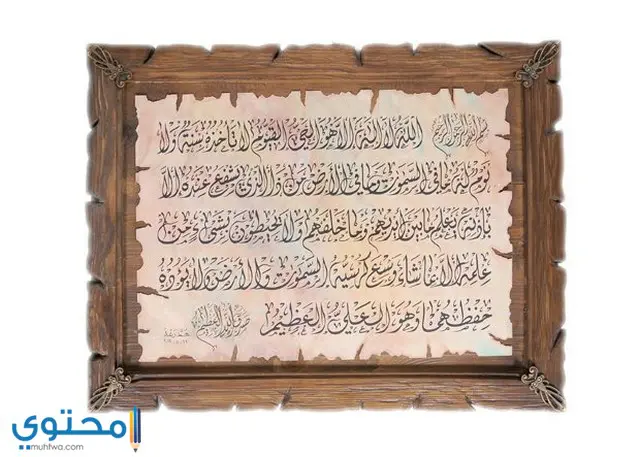 بسم الله الرحمن الرحيم الله لا إله إلا هو الحي القيوم لا تأخذه سنة ولا
نوم له ما في السموت وما في الأرض من ذا الذي يشفع عنده إلا
بإذنه يعلم ما بين أيديهم وما خلفهم ولا يحيطون بشيء من
علمه إلا بما شاء وسع كرسيه السموت والأرض ولا يؤده
حفظهما وهو العلي العظيم صدق الله العظيم
محتوي
muhtwa.com